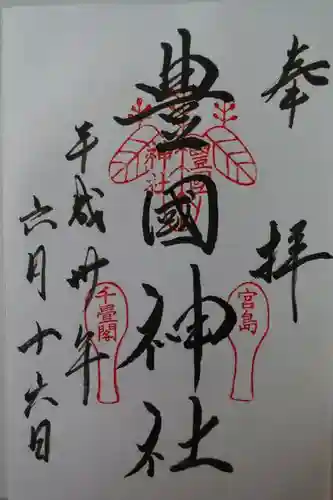 奉拝
豊國神社
豐国神社
宮島
千畳閣
平成卅年
六月十六日